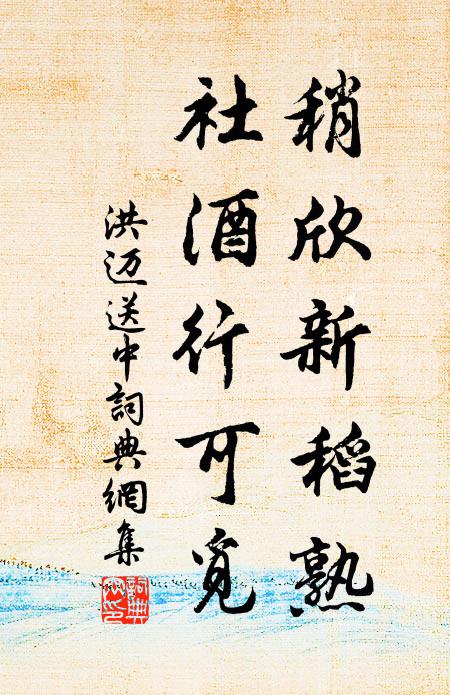 稍欣新稻熟
社酒行可觅
洪迈送中詞典網集